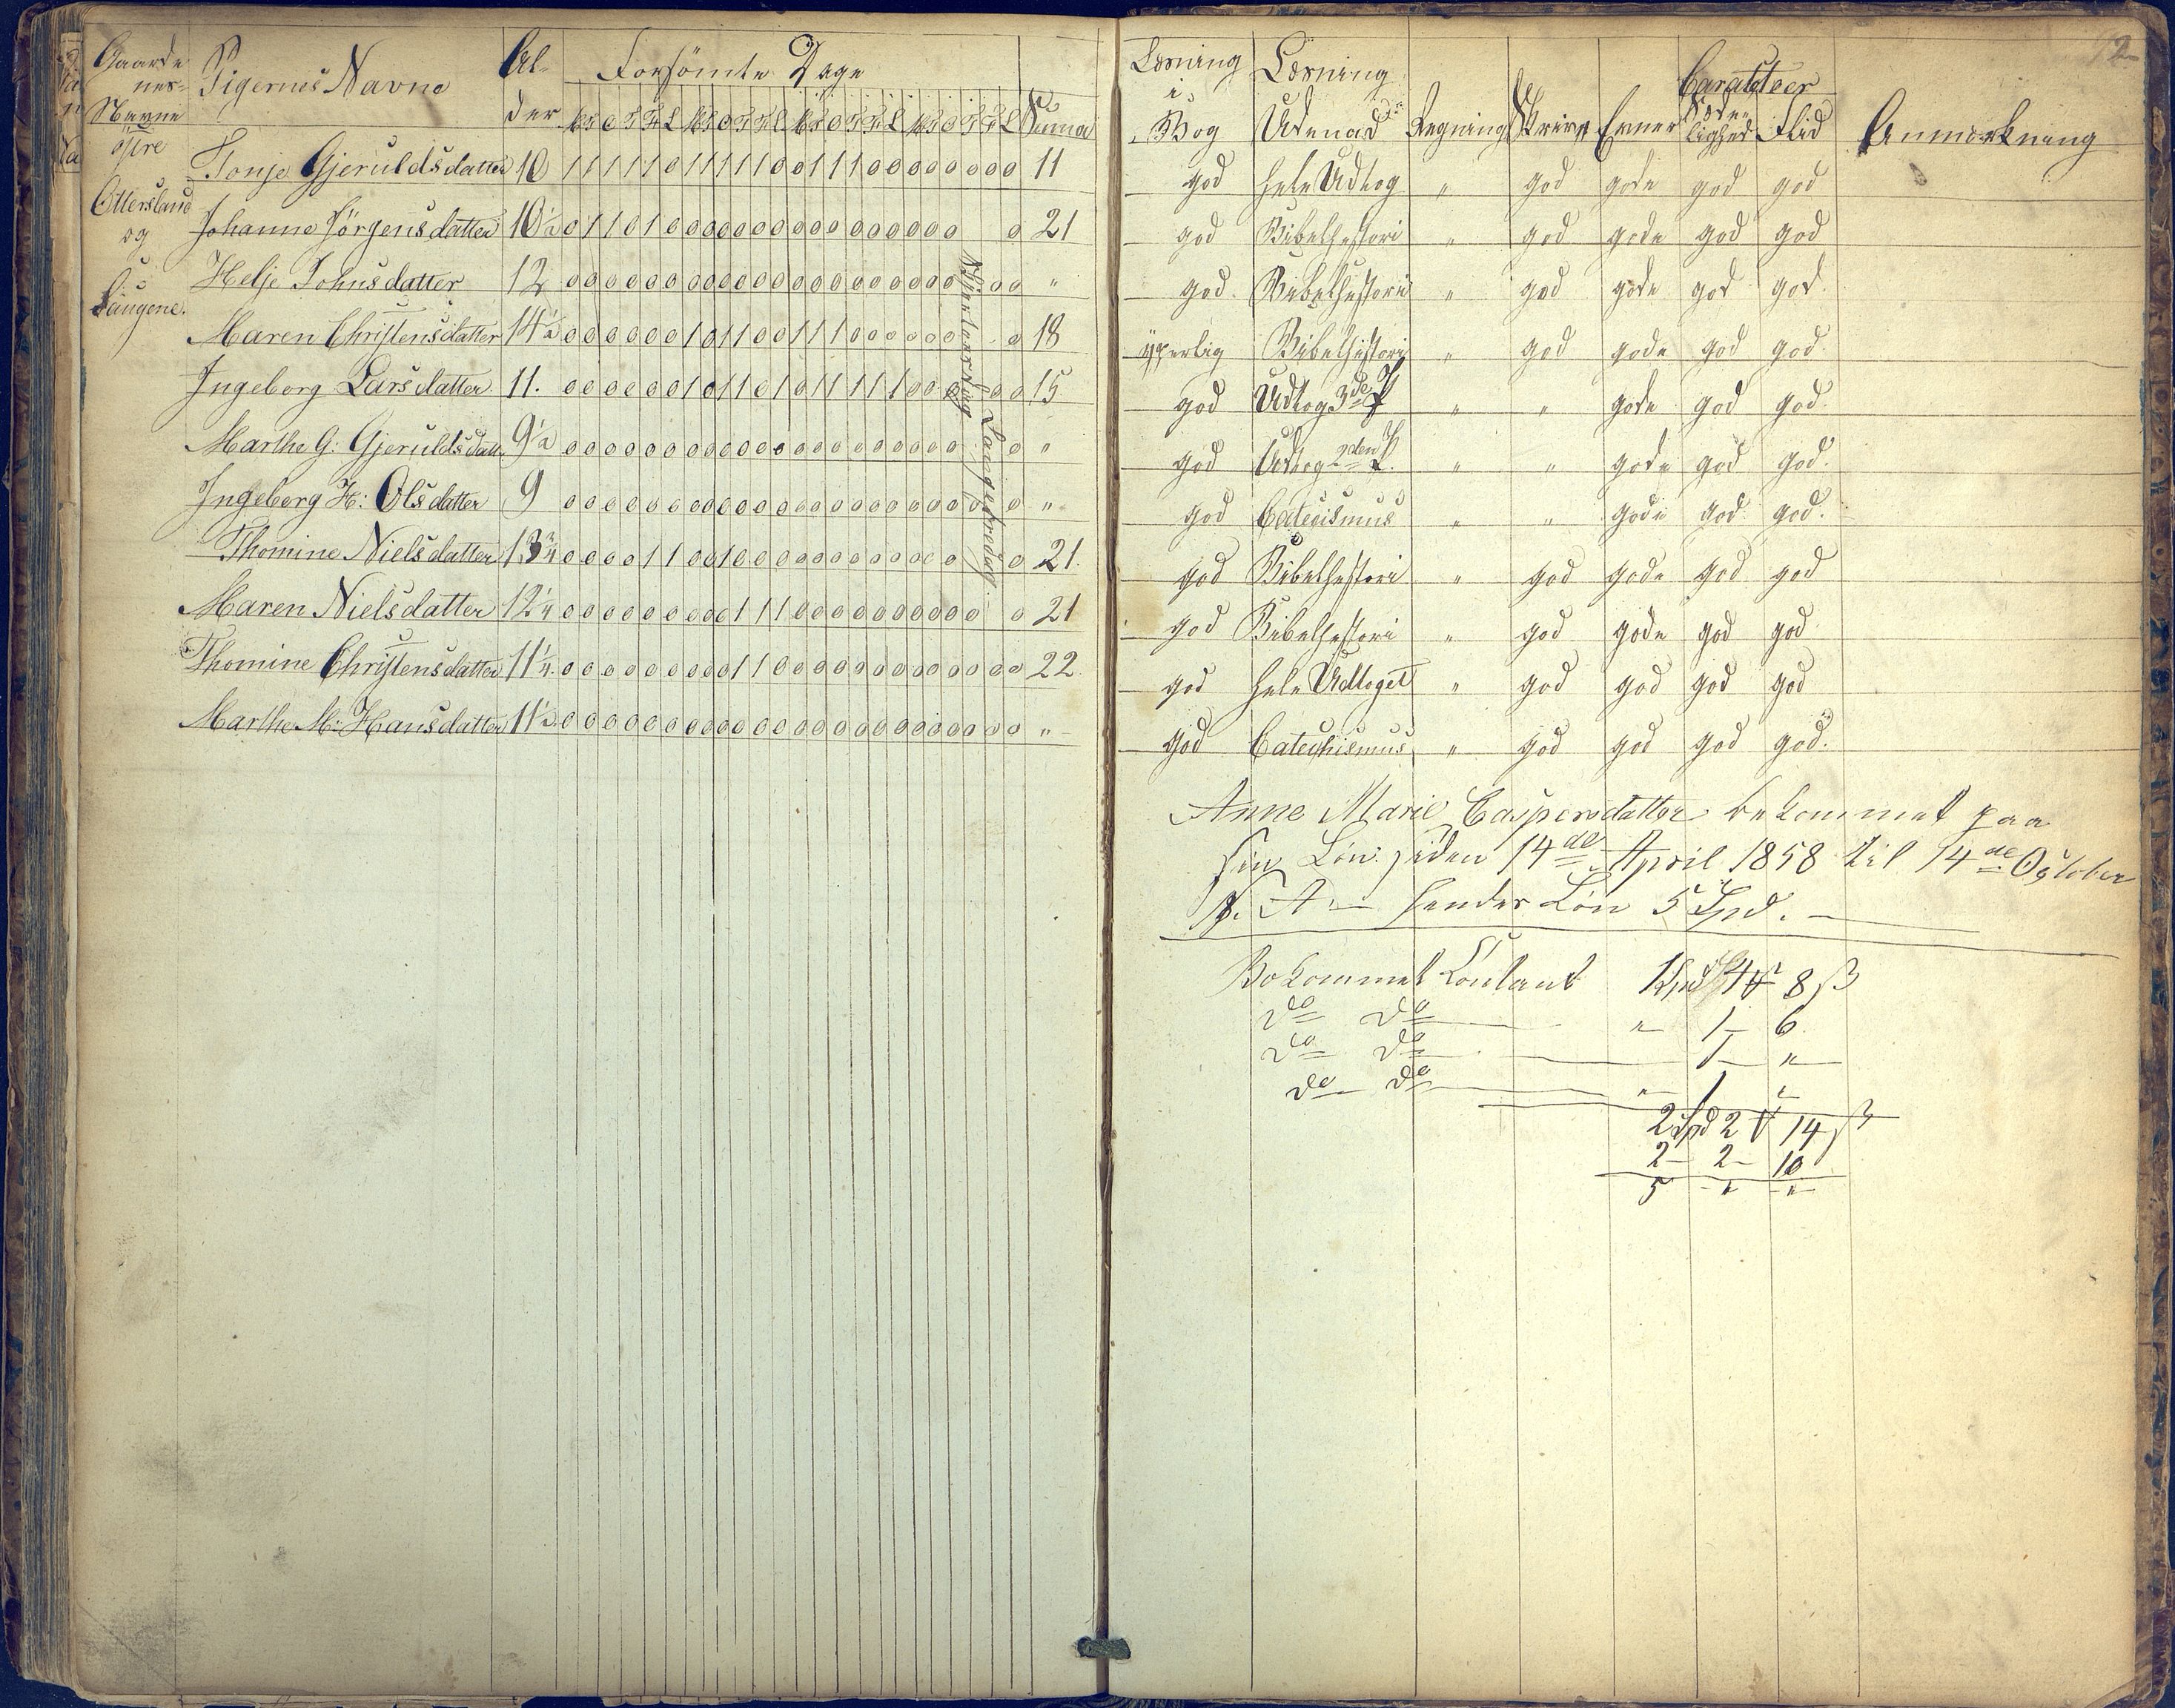 Gaarde
nes-
Navne
Pigernes Navne
Al-
der
Forsömte Dage
M T O T F L M T O T F L M T O T F L M T O T F L
Suma
östre
Ottersland
og
Laugene.
Tonje Gjeruldsdatter 10 1 1 1 1 1 0 1 1 1 1 1 0 0 1 1 1 0 0 0 0 0 0 0 0 11
Johanne Jörgensdatter 10½ 0 1 1 0 1 0 0 0 0 0 0 0 0 0 0 0 0 0 0 0 0 0 21
Helje Johnsdatter 12 0 0 0 0 0 0 0 0 0 0 0 0 0 0 0 0 0 0 0 0 0 0 0 "
Maren Christensdatter 14½ 0 0 0 0 0 0 1 0 1 1 0 0 1 1 1 0 0 0 0 0 0 0 18
Ingeborg Larsdatter 11. 0 0 0 0 0 0 1 0 1 1 0 1 0 1 1 1 1 1 0 0 0 0 0 15
Marthe G: Gjeruldsdatt. 9½ 0 0 0 0 0 0 0 0 0 0 0 0 0 0 0 0 0 0 0 0 0 0 "
Ingeborg H: Olsdatter 9 0 0 0 0 0 0 0 0 0 0 0 0 0 0 0 0 0 0 0 0 0 0 0 "
Thomine Nielsdatter 13¾ 0 0 0 0 1 1 0 0 1 0 0 0 0 0 0 0 0 0 0 0 0 0 21.
Maren Nielsdatter 12¼ 0 0 0 0 0 0 0 0 0 1 1 1 0 0 0 0 0 0 0 0 0 0 0 21
Thomine Christensdatter 11¼. 0 0 0 0 0 0 0 0 0 1 1 0 0 0 0 0 0 0 0 0 0 0 0 0 22.
Marthe M: Hansdatter 11½ 0 0 0 0 0 0 0 0 0 0 0 0 0 0 0 0 0 0 0 0 0 0 0 0 "
Skjertorsdag
Langefredag
Læsning
i
Bog
Læsning
Udenad
Regning
Skrivn
Evner
Caracteer
Sæde-
lighed
Flid
Anmærkning
god hele Udtog " god gode god god
god Bibelhistori " god gode god god
god. Bibelhistori " god gode god god.
ÿperlig Bibelhistori " god gode god god
god Udtog 3de P " " gode god god.
god Udtog 2den P. " " gode god god.
god Catecismus " " gode god god.
god Bibelhistori " god gode god god
god Bibelhistori " god gode god god
god hele Udtoget " god god god god
god Catechismus " god god god god.
Anne Marie Caspersdatter bekommet paa
sin Lön siden 14de April 1858 til 14de October
s. A — hendes Lön 5 Spd. —
Bekommet Contant 1 Spd 4 8 ß
do do " 1 6
do do 1 "
do do " 1 "
2 Spd 2 14 ß
2 2 10
5 " "